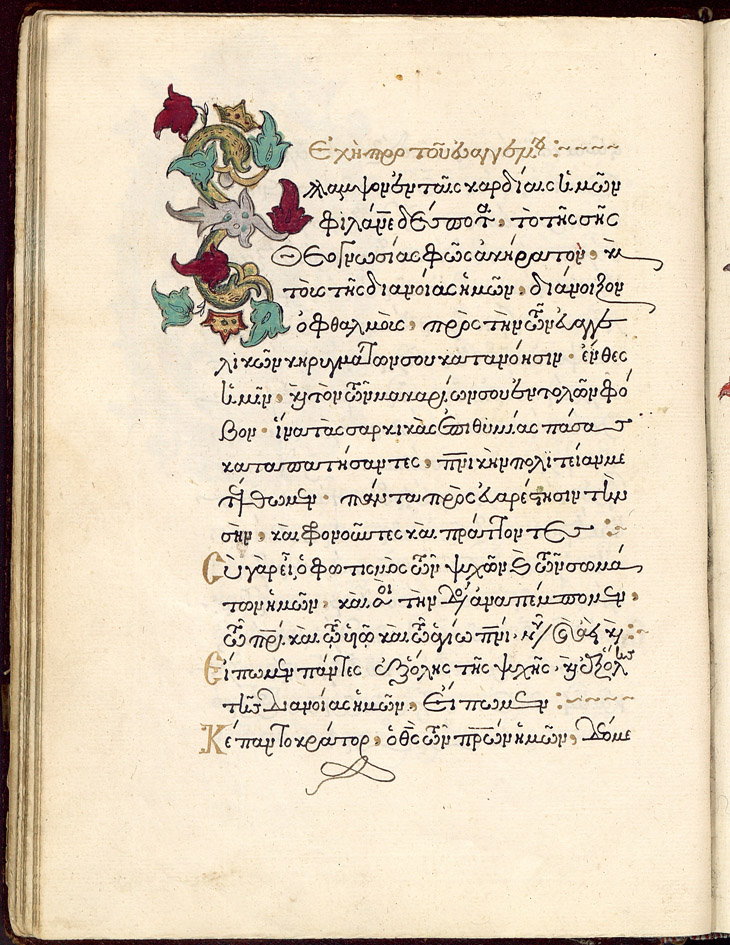 Εὐχὴ πρὸ τοῦ εὐαγγελίου :~~~~
Ἔλλαμψον ἐν ταῖς καρδίαις ἡμῶν
φιλάνε δέσποτα, τὸ τῆς σῆς
θεογνωσίας φῶς ἀκήρατον, κ(αὶ)
τοὺς τῆς διανοίας ἡμῶν, διάνοιξον
ὀφθαλμοὺς, πρὸς τὴν τῶν εὐαγγε
λικῶν κηρυγμάτων σου κατανόησιν · ἔνθες
ἡμῖν, κ(αὶ) τὸν τῶν μακαρίων σου ἐντολῶν φό
βον · ἵνα τὰς σαρκικὰς ἐπιθυμίας πάσας
καταπατήσαντες, πνικὴν πολιτείαν με
τέλθωμεν · πάντα πρὸς εὐαρέστησιν τὴν
σὴν, καὶ φρονοῦντες καὶ πράττοντες :~
Σὺ γὰρ εἶ ὁ φωτισμὸς τῶν ψυχῶν κ(αὶ) τῶν σωμά
των ἡμῶν, καὶ σοὶ τὴν δό ἀναπέμπομεν,
τῶ πρὶ καὶ τῶ υἱῶ καὶ τῶ ἁγίω πνι · νῦν
Εἴπωμεν πάντες ἐξ ὅλης τῆς ψυχῆς · κ(αὶ) ἐξ ὅλ
τῆς διανοίας ἡμῶν, εἴπωμεν :~~~~
Κέ παντοκράτορ, ὁ θς τῶν πρων ἡμῶν, δεόμε